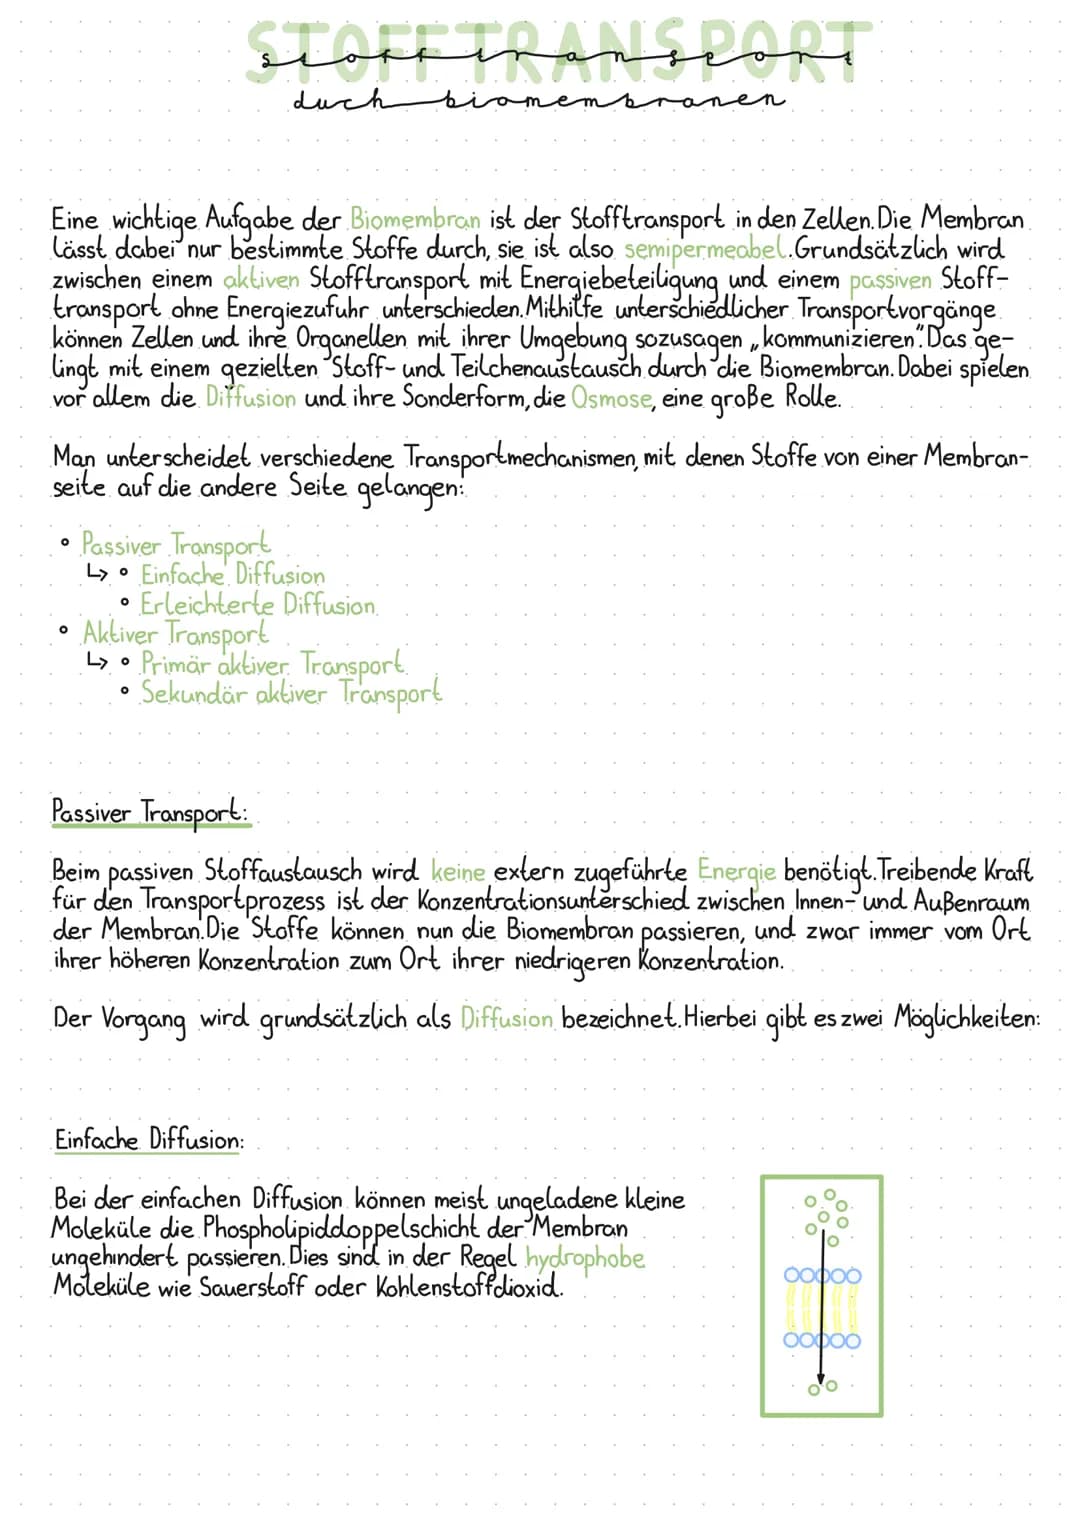 STOFFTRANSPORT
stofftransport
duch biomembranen
Eine wichtige Aufgabe der Biomembran ist der Stofftransport in den Zellen. Die Membran
lässt dabei nur bestimmte Stoffe durch, sie ist also semipermeabel. Grundsätzlich wird
zwischen einem aktiven Stofftransport mit Energiebeteiligung und einem passiven Stoff-
transport ohne Energiezufuhr unterschieden. Mithilfe unterschiedlicher Transportvorgänge
können Zellen und ihre Organellen mit ihrer Umgebung sozusagen „kommunizieren". Das ge-
lingt mit einem gezielten Stoff- und Teilchenaustausch durch die Biomembran. Dabei spielen
vor allem die Diffusion und ihre Sonderform, die Osmose, eine große Rolle.
Man unterscheidet verschiedene Transportmechanismen, mit denen Stoffe von einer Membran-
seite auf die andere Seite gelangen:
° Passiver Transport
↳ ° Einfache Diffusion
° Erleichterte Diffusion
° Aktiver Transport
↳ ° Primär aktiver Transport
° Sekundär aktiver Transport
Passiver Transport:
Beim passiven Stoffaustausch wird keine extern zugeführte Energie benötigt. Treibende Kraft
für den Transportprozess ist der Konzentrationsunterschied zwischen Innen- und Außenraum
der Membran. Die Stoffe können nun die Biomembran passieren, und zwar immer vom Ort
ihrer höheren Konzentration zum Ort ihrer niedrigeren Konzentration.
Der Vorgang wird grundsätzlich als Diffusion bezeichnet. Hierbei gibt es zwei Möglichkeiten:
Einfache Diffusion:
Bei der einfachen Diffusion können meist ungeladene kleine
Moleküle die Phospholipiddoppelschicht der Membran
ungehindert passieren. Dies sind in der Regel hydrophobe
Moleküle wie Sauerstoff oder Kohlenstoffdioxid.